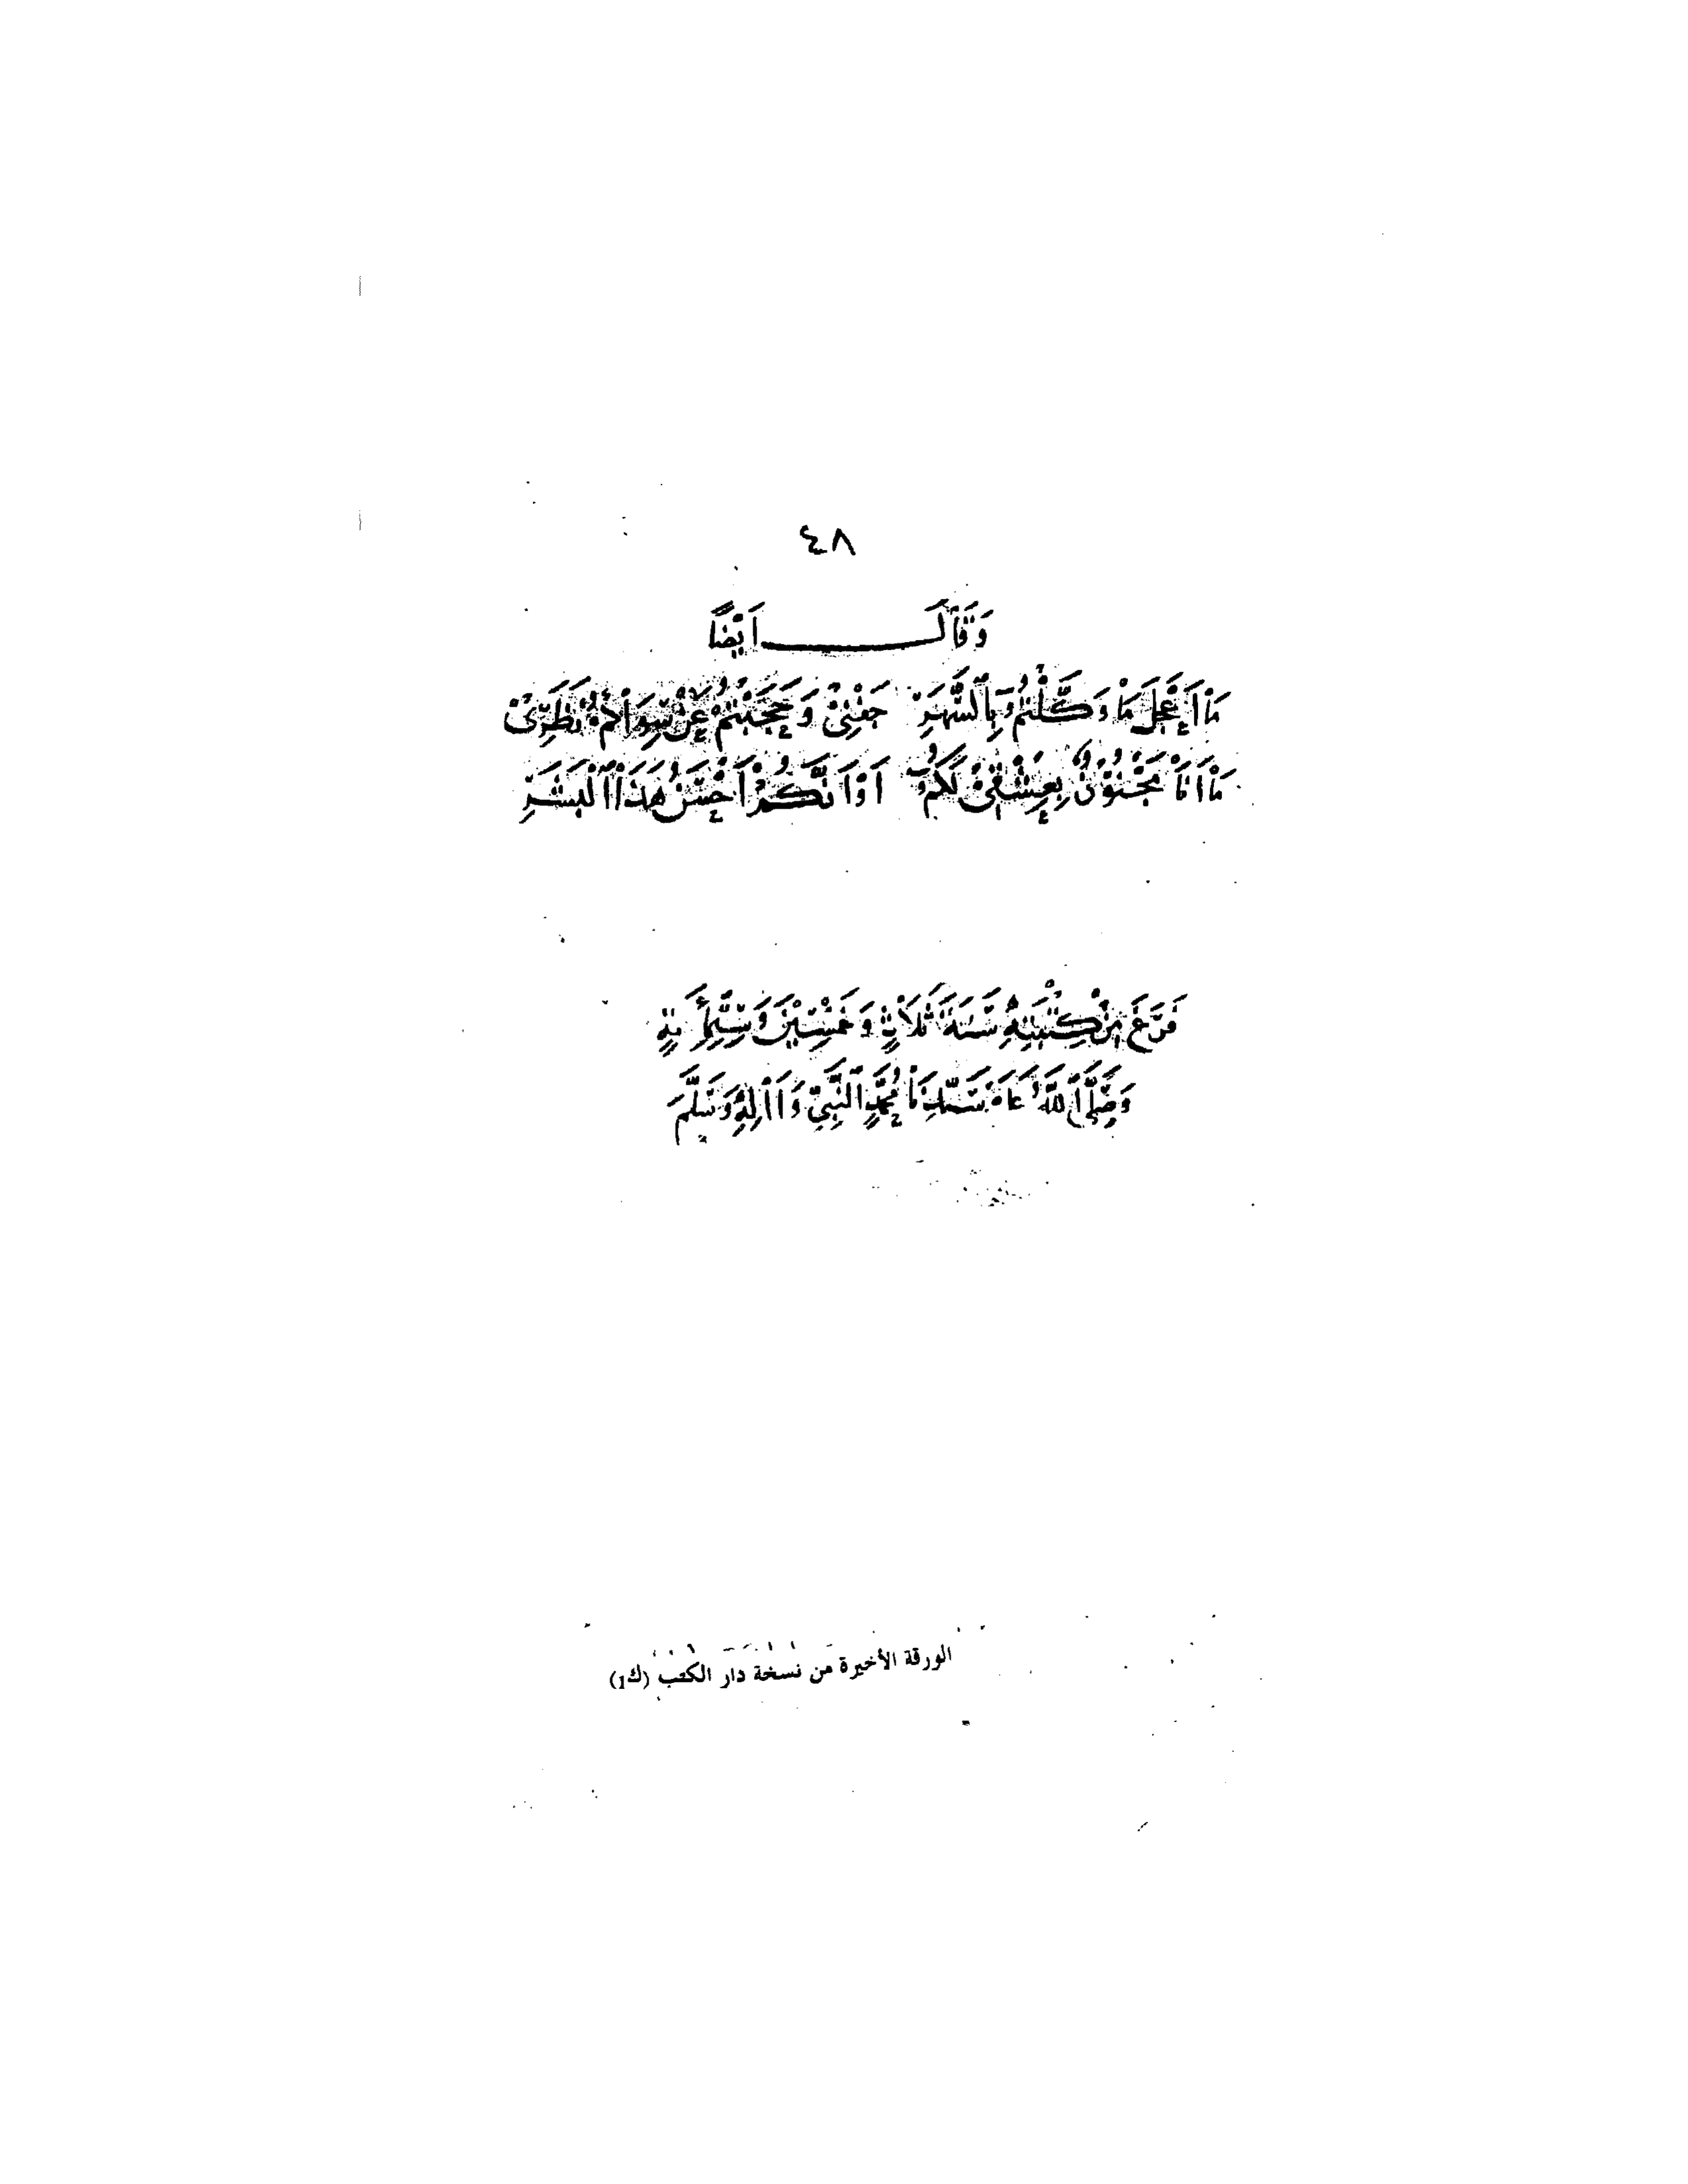 ٤٨
وَقَالَ أَيْضًا
مَا أَعْجَلَ مَا وَكَّلْتُمُ بِالسَّهَرِ جَفْنِيْ وَحَجَبْتُمْ عَنْ سِوَاكُمْ نَظَرِيْ
مَا أَنَا مَجْنُوْنٌ بِعِشْقِيْ لَكُمُ أَوْ أَنَّكُمْ أَحْسَنُ هَذَا الْبَشَرِ
فَرَغَ مِنْ كِتْبَتِهِ سَنَةَ ثَلَاثٍ وَخَمْسِيْنَ وَسِتِّمِائَةٍ
وَصَلَّى اللَّهُ عَلَى سَيِّدِنَا مُحَمَّدٍ النَّبِيِّ وَآلِهِ وَسَلَّمَ
الورقة الأخيرة من نسخة دار الكتب (ك1)